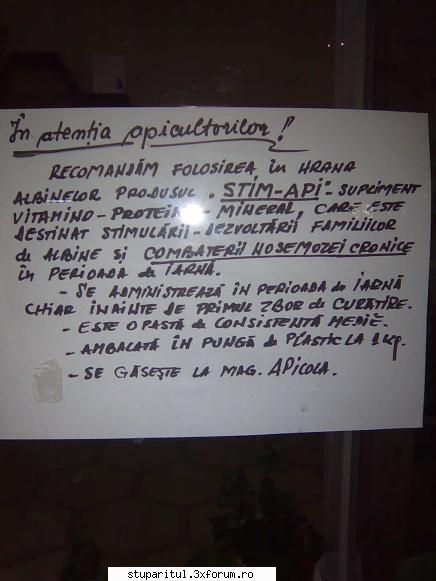 În atenția apicultorilor!
RECOMANDĂM FOLOSIREA, în HRANA
ALBINELOR PRODUSUL "STIM-API"- SUPLIMENT
VITAMINO-PROTEINO- MINERAL, CARE ESTE
DESTINAT STIMULĂRII-DEZVOLTĂRII FAMILIILOR
de ALBINE și COMBATERII NOSEMOZEI CRONICE
în PERIOADA de IARNĂ.
- SE ADMINISTREAZĂ ÎN PERIOADA de IARNĂ
CHIAR ÎNAINTE DE PRIMUL ZBOR de CURĂȚIRE.
- ESTE O PASTĂ de CONSISTENȚĂ MEDIE.
- AMBALATĂ ÎN PUNGĂ de PLASTIC LA 1 kg.
- SE GĂSEȘTE LA MAG. APICOLA.
stuparitul.3xforum.ro